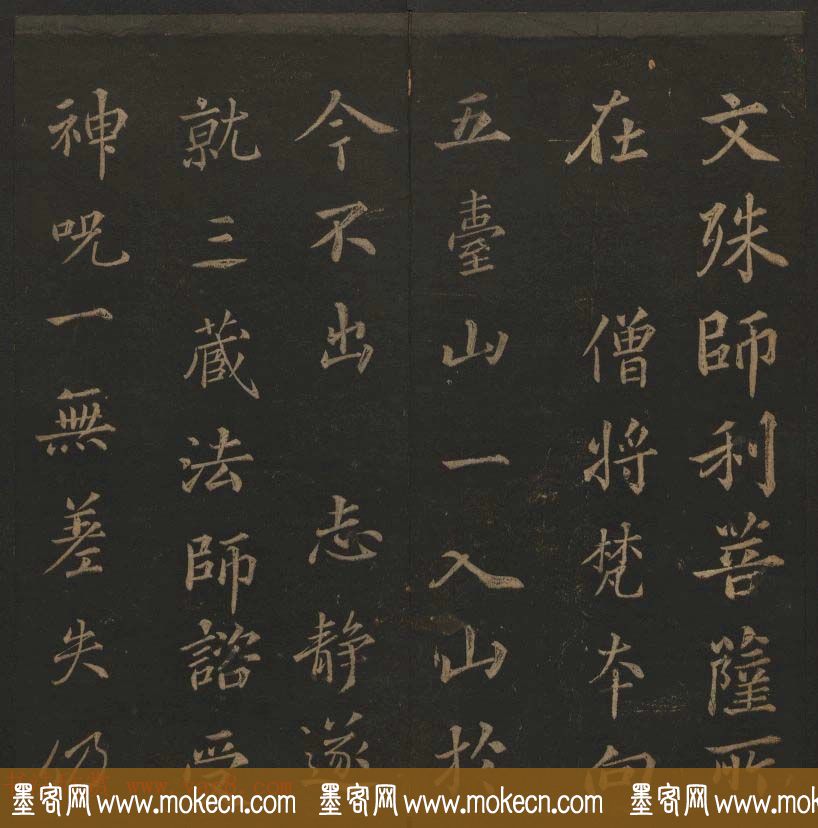 文殊師利菩薩所
在 僧將梵本向
五臺山一入山於
今不出 志静遂
就三藏法師諮受
神呪一無差失仍
墨客网 www.mokecn.com 墨客网 www.mokecn.com 墨客网 www.mokecn.com